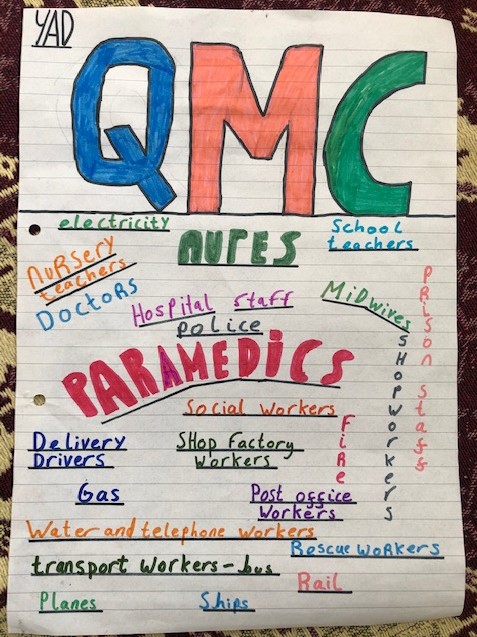 YAD
QMC
electricity
NURES
School
teachers
NuRSery
teachers
DoctoRS
Hospital staff
police
MiDwives
PRison staff
SHopworkers
PARAMEDiCS
Social workers
FiRe
Delivery
Drivers
SHop factory
workers
Gas
Post office
workers
Water and telephone workers
Rescue woRKers
transport workers-bus
Rail
Planes
Ships